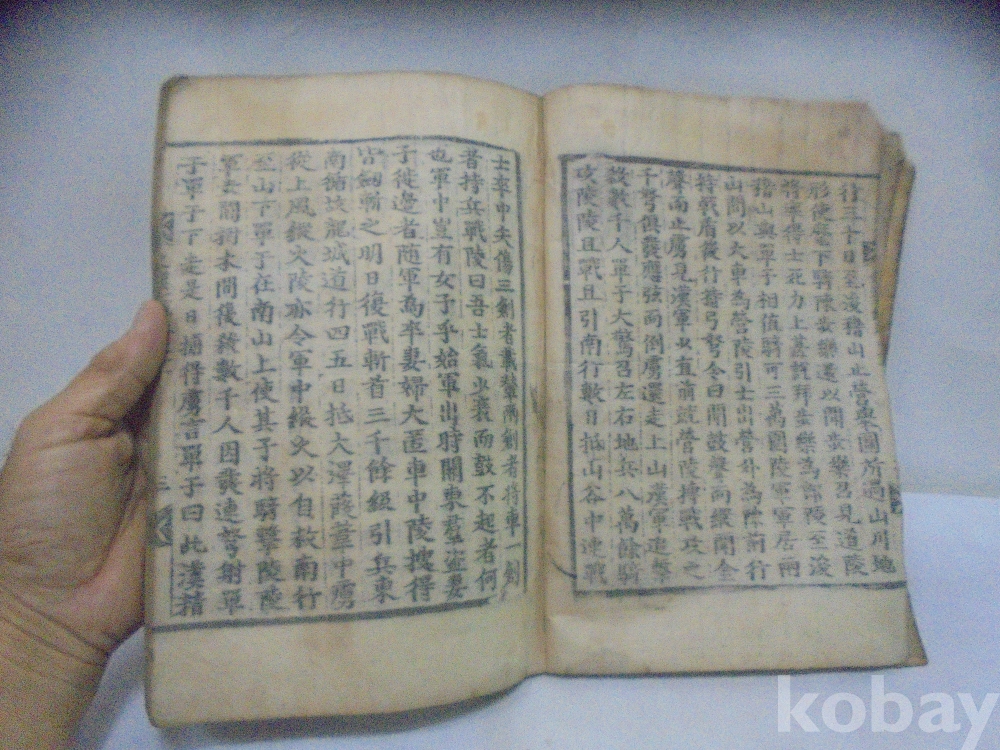 行三十日至浚稽山止營舉圖所過山川地
形使麾下騎陳步樂還以聞步樂召見道陵
將率得士死力上甚說拜步樂爲郎陵至浚
稽山與單于相值騎可三萬圍陵軍軍居兩
山間以大車爲營陵引士出營外爲陣前行
持戟盾後行持弓弩令曰聞鼓聲而縱聞金
聲而止虜見漢軍少直前就營陵搏戰攻之
千弩俱發應弦而倒虜還走上山漢軍追擊
殺數千人單于大驚召左右地兵八萬餘騎
攻陵陵且戰且引南行數日抵山谷中連戰
士卒中矢傷三創者載輦兩創者將車一創
者持兵戰陵曰吾士氣少衰而鼓不起者何
也軍中豈有女子乎始軍出時關東群盜妻
子徙邊者隨軍爲卒妻婦大匿車中陵搜得
皆劒斬之明日復戰斬首三千餘級引兵東
南循故龍城道行四五日抵大澤葭葦中虜
從上風縱火陵亦令軍中縱火以自救南行
至山下單于在南山上使其子將騎擊陵陵
軍步鬪樹木間復殺數千人因發連弩射單
于單于下走是日捕得虜言單于曰此漢精
三
kobay